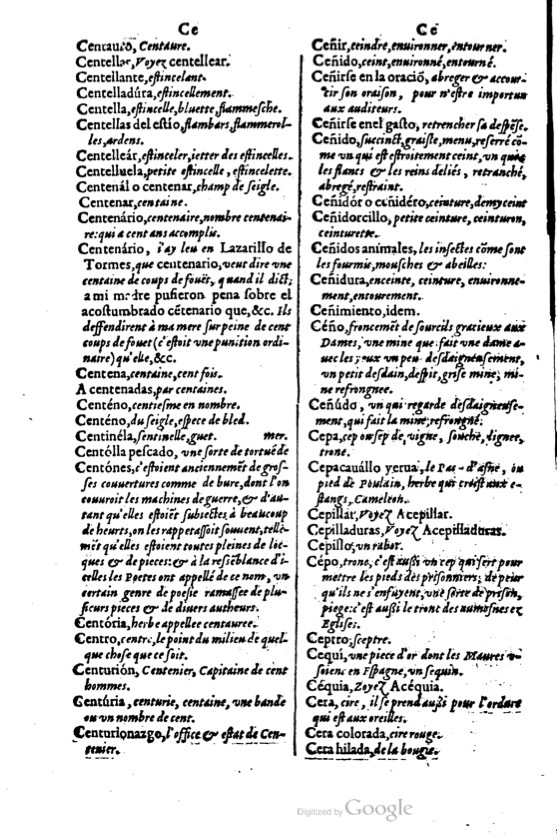 Ce
Centauro, Centaure.
Centellar, Voyez centellear.
Centellante, estincelant.
Centelladúra, estincellement.
Centella, estincelle, bluette, flammesche.
Centellas del estio, flambars, flammerol-
les, ardens.
Centelleár, estinceler, ietter des estincelles.
Centelluela, petite estincelle, estincelette.
Centenál o centenar, champ de seigle.
Centenar, centaine.
Centenário, centenaire, nombre centenai-
re: qui a cent ans accomplis.
Centenário, i'ay leu en Lazarillo de
Tormes, que centenario, veut dire une
centaine de coups de fouët, quand il dict;
a mi madre pusieron pena sobre el
acostumbrado cētenario que, &c. Ils
deffendirent à ma mere sur peine de cent
coups de fouet (c'estoit vne punition ordi-
naire) qu'elle, &c.
Centena, centaine, cent fois.
A centenadas, par centaines.
Centéno, centiesme en nombre.
Centéno, du seigle, espece de bled.
Centinéla, sentinelle, guet. mer.
Centólla pescado, vne sorte de tortuë de
Centónes, c'estoient anciennemēt de gros-
ses couuertures comme de bure, dont l'on
couuroit les machines de guerre, & d'au-
tant qu'elles estoiēt subiectes à beaucoup
de heurts, on les rappetassoit souuent, tellē-
mēt qu'elles estoient toutes pleines de lo-
ques & de pieces: & à la ressēblance d'i-
celles les Poetes ont appellé de ce nom, vn
certain genre de poesie ramassee de plu-
sieurs pieces & de diuers autheurs.
Centória, herbe appellee centauree.
Centro, centre, le point du milieu de quel-
que chose que ce soit.
Centurión, Centenier, Capitaine de cent
hommes.
Centúria, centurie, centaine, vne bande
ou vn nombre de cent.
Centurionazgo, l'office & estat de Cen-
tenier.
Ce
Ceñir, ceindre, enuironner, entourner.
Ceñido, ceint, enuironné, entourné.
Ceñirse en la oració, abreger & accour-
cir son oraison, pour n'estre importun
aux auditeurs.
Ceñirse enel gasto, retrencher sa despēse.
Ceñido, succinct, graisle, menu, reserré cō-
me vn qui est estroitement ceint, vn qui a
les flancs & les reins deliés, retranché,
abregé, restraint.
Ceñidór o ceñidéro, ceinture, demyceint
Ceñidorcillo, petite ceinture, ceinturon,
ceinturette.
Ceñidos animales, les insectes cōme sont
les fourmis, mousches & abeilles:
Ceñidura, enceinte, ceinture, enuironne-
ment, entourement.
Ceñimiento, idem.
Céño, froncemēt de sourcils gracieux aux
Dames, vne mine que fait vne dame a-
uec les yeux vn peu desdaigneusement,
vn petit desdain, despit, grise mine; mi-
ne refrongnee.
Ceñúdo, vn qui regarde desdaigneuse-
ment, qui fait la mine, refrongné;
Cepa, cep ou sep de vigne, souche, lignee,
trone.
Cepacauállo yerua, le Pas-d'asne, ou
pied de Poulain, herbe qui croist aux e-
stangs, Cameleon.
Cepillar, Voyez Acepillar.
Cepilladuras, Voyez Acepilladuras.
Cepillo, vn rabot.
Cépo, trone, c'est aussi vn cep qui sert pour
mettre les pieds des prisonniers, de peur
qu'ils ne s'enfuyent, vne sorte de prison,
piege: c'est aussi le tronc des aumosnes ez
Eglises.
Ceptro, sceptre.
Cequí, vne piece d'or dont les Maures v-
soient en Espagne, vn sequin.
Céquia, Zoyez Acéquia.
Cera, cire, il se prend aussi pour l'ordure
qui est aux oreilles.
Cera colorada, cire rouge.
Cera hilada, de la bougie.
Digitized by Google